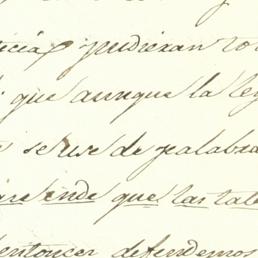 ticia, pudieran to
que aunque la ley
se use de palabra
que las tale
entonces defendemos